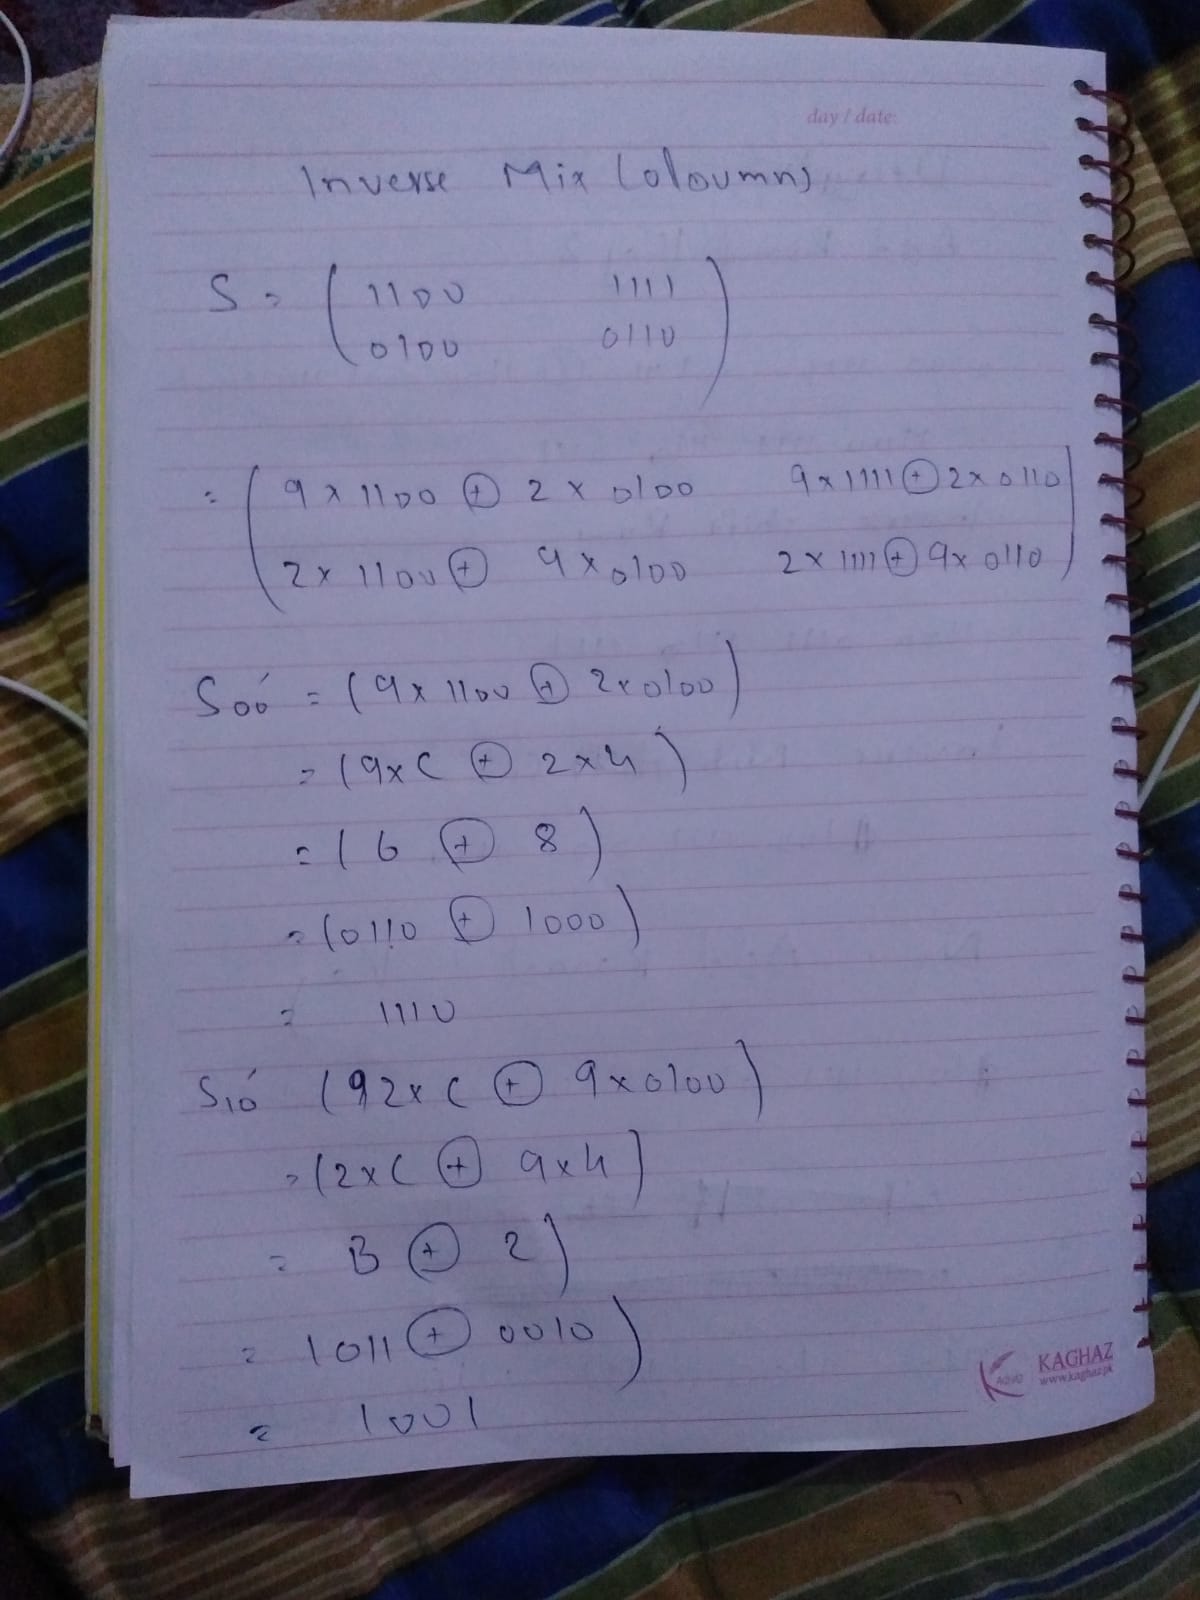 day / date:
Inverse Mix Coloumns
S = ( 1100 1111
0100 0110 )
= ( 9 x 1100 ⊕ 2 x 0100 9 x 1111 ⊕ 2 x 0110
2 x 1100 ⊕ 9 x 0100 2 x 1111 ⊕ 9 x 0110 )
S00' = ( 9 x 1100 ⊕ 2 x 0100 )
= ( 9 x C ⊕ 2 x 4 )
= ( 6 ⊕ 8 )
= ( 0110 ⊕ 1000 )
= 1110
S10' ( 92 x C ⊕ 9 x 0100 )
= ( 2 x C ⊕ 9 x 4 )
= B ⊕ 2 )
= 1011 ⊕ 0010 )
= 1001
KAGHAZ
www.kaghaz.pk